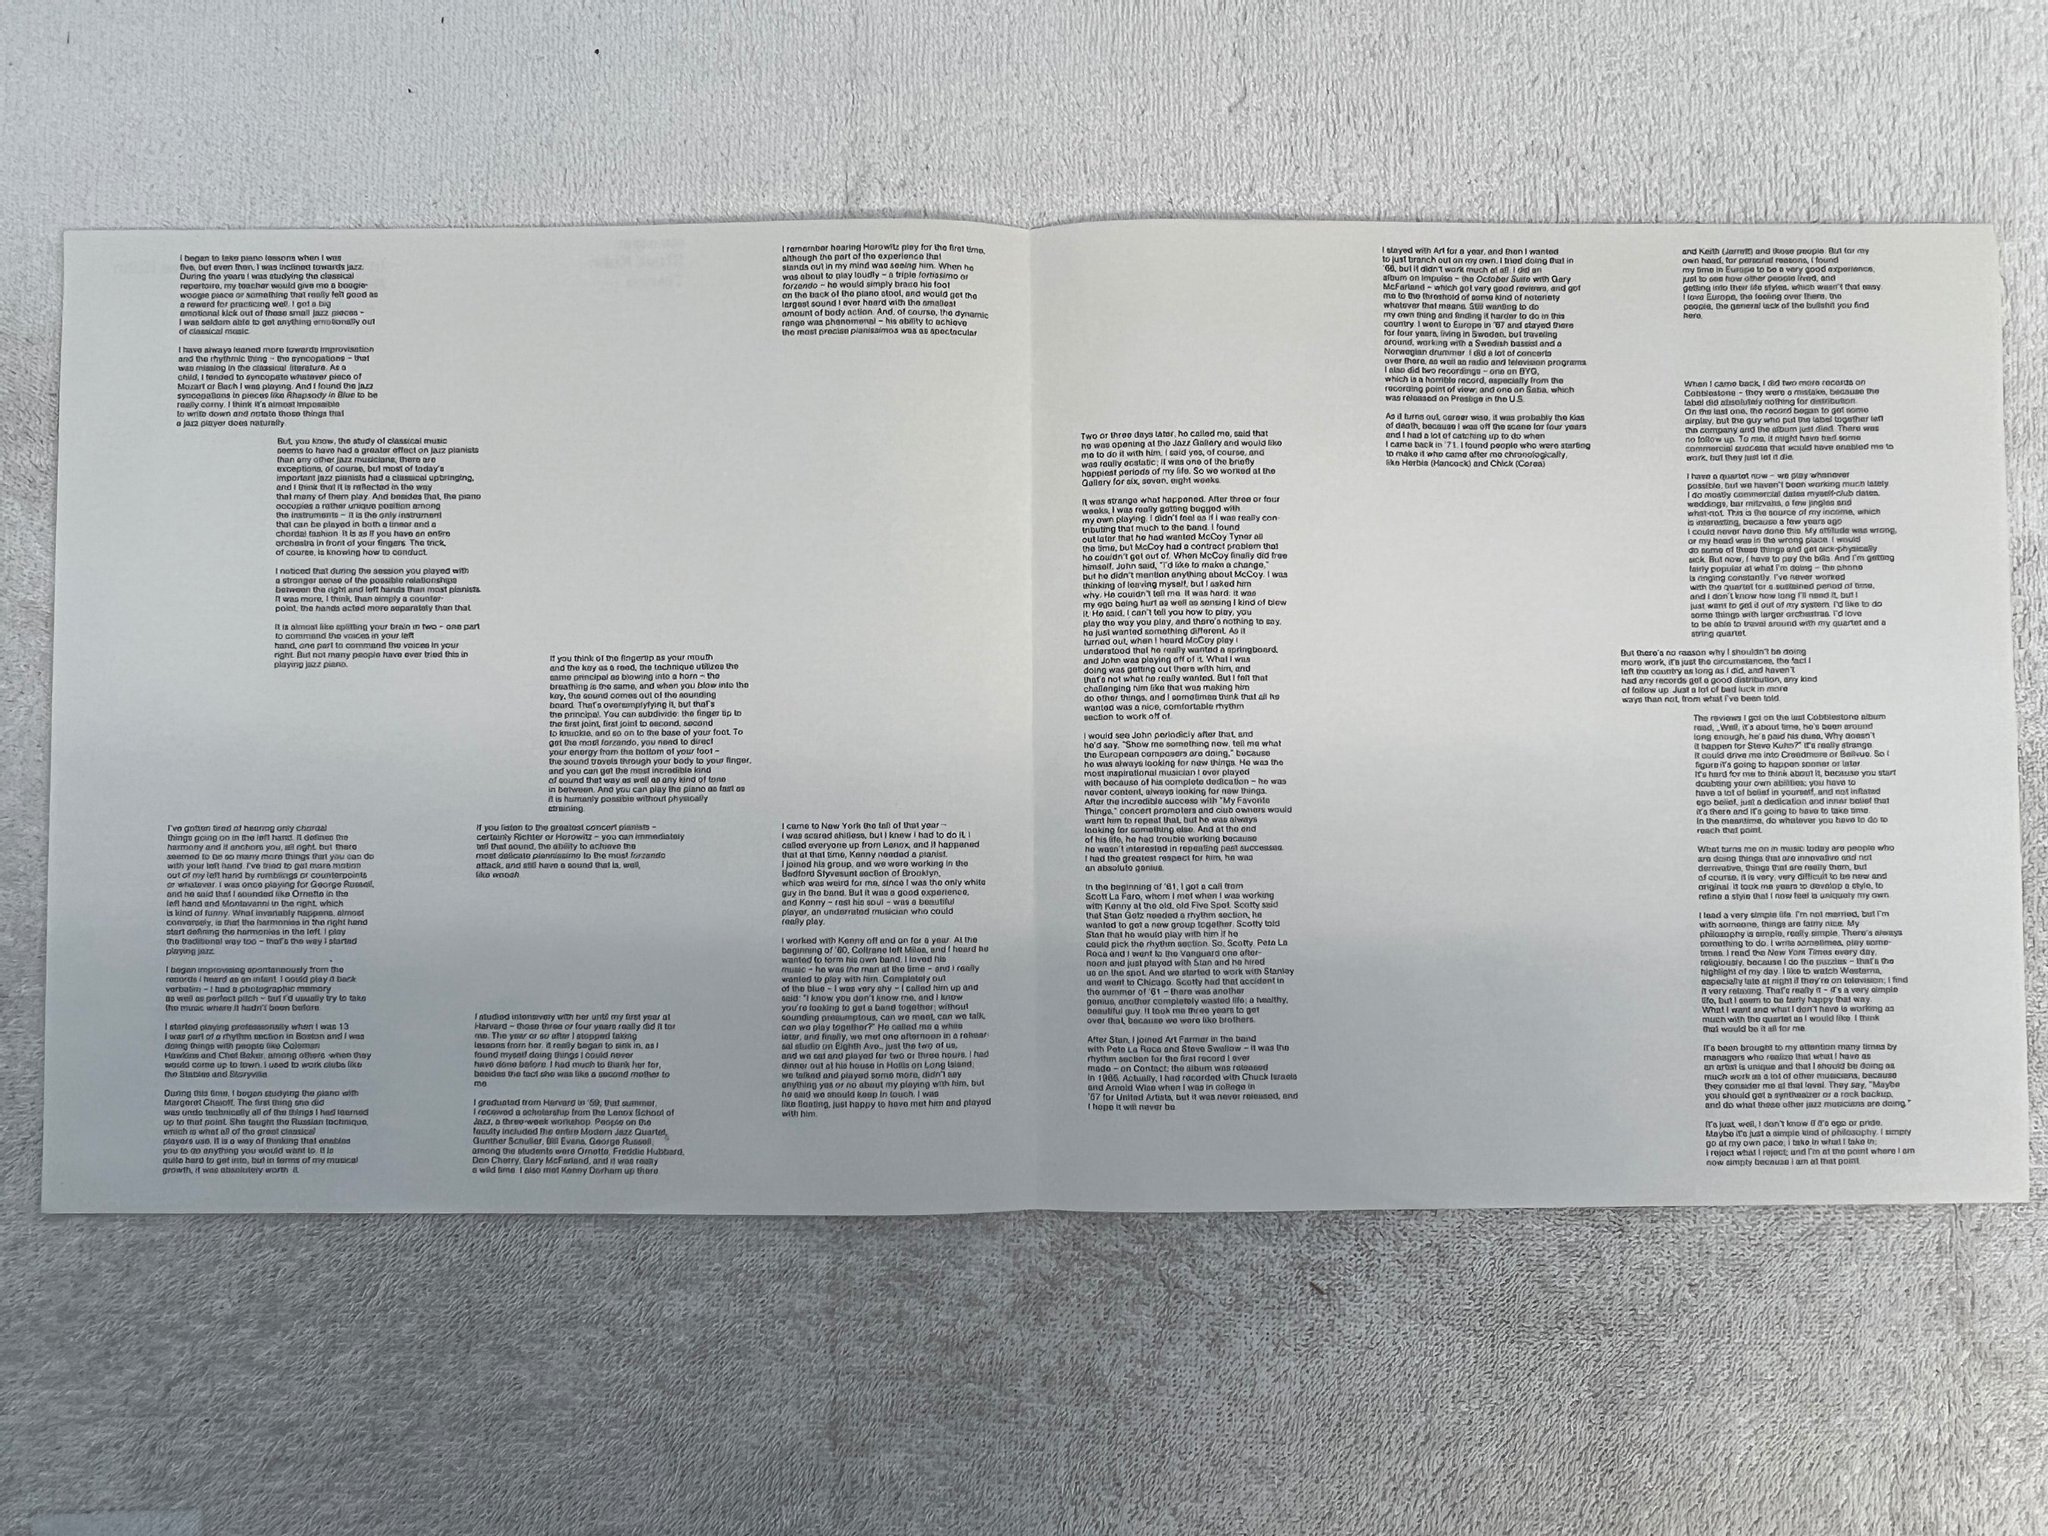 I began to take piano lessons when I was
five, but even then, I was inclined towards jazz.
During the years I was studying the classical
repertoire, my teacher would give me a boogie-
woogie piece or something that really felt good as
a reward for practicing well. I got a big
emotional kick out of those small jazz pieces –
I was seldom able to get anything emotionally out
of classical music.
I have always leaned more towards improvisation
and the rhythmic thing – the syncopations – that
was missing in the classical literature. As a
child, I tended to syncopate whatever piece of
Mozart or Bach I was playing. And I found the jazz
syncopations in pieces like Rhapsody in Blue to be
really corny. I think it's almost impossible
to write down and notate those things that
a jazz player does naturally.
But, you know, the study of classical music
seems to have had a greater effect on jazz pianists
than any other jazz musicians, there are
exceptions, of course, but most of today's
important jazz pianists had a classical upbringing,
and I think that it is reflected in the way
that many of them play. And besides that, the piano
occupies a rather unique position among
the instruments – it is the only instrument
that can be played in both a linear and a
chordal fashion. It is as if you have an entire
orchestra in front of your fingers. The trick,
of course, is knowing how to conduct.
I noticed that during the session you played with
a stronger sense of the possible relationships
between the right and left hands than most pianists.
It was more, I think, than simply a counter-
point, the hands acted more separately than that.
It is almost like splitting your brain in two – one part
to command the voices in your left
hand, one part to command the voices in your
right. But not many people have ever tried this in
playing jazz piano.
I've gotten tired of hearing only chordal
things going on in the left hand. It defines the
harmony and it anchors you, all right, but there
seemed to be so many more things that you can do
with your left hand. I've tried to get more motion
out of my left hand by rumblings or counterpoints
or whatever. I was once playing for George Russell,
and he said that I sounded like Ornette in the
left hand and Mantovanni in the right, which
is kind of funny. What invariably happens, almost
conversely, is that the harmonies in the right hand
start defining the harmonies in the left. I play
the traditional way too – that's the way I started
playing jazz.
I began improvising spontaneously from the
records I heard as an infant. I could play it back
verbatim – I had a photographic memory
as well as perfect pitch – but I'd usually try to take
the music where it hadn't been before.
I started playing professionally when I was 13
I was part of a rhythm section in Boston and I was
doing things with people like Coleman
Hawkins and Chet Baker, among others when they
would come up to town. I used to work clubs like
the Stables and Storyville.
During this time, I began studying the piano with
Margaret Chaloff. The first thing she did
was undo technically all of the things I had learned
up to that point. She taught the Russian technique,
which is what all of the great classical
players use. It is a way of thinking that enables
you to do anything you would want to. It is
quite hard to get into, but in terms of my musical
growth, it was absolutely worth it.
If you think of the fingertip as your mouth
and the key as a reed, the technique utilizes the
same principal as blowing into a horn – the
breathing is the same, and when you blow into the
key, the sound comes out of the sounding
board. That's oversimplyfying it, but that's
the principal. You can subdivide: the finger tip to
the first joint, first joint to second, second
to knuckle, and so on to the base of your foot. To
get the most forzando, you need to direct
your energy from the bottom of your foot –
the sound travels through your body to your finger,
and you can get the most incredible kind
of sound that way as well as any kind of tone
in between. And you can play the piano as fast as
it is humanly possible without physically
straining.
If you listen to the greatest concert pianists –
certainly Richter or Horowitz – you can immediately
tell that sound, the ability to achieve the
most delicate piannissimo to the most forzando
attack, and still have a sound that is, well,
like woosh.
I studied intensively with her until my first year at
Harvard – those three or four years really did it for
me. The year or so after I stopped taking
lessons from her, it really began to sink in, as I
found myself doing things I could never
have done before. I had much to thank her for,
besides the fact she was like a second mother to
me.
I graduated from Harvard in '59, that summer,
I received a scholarship from the Lenox School of
Jazz, a three-week workshop. People on the
faculty included the entire Modern Jazz Quartet,
Gunther Schuller, Bill Evans, George Russell;
among the students were Ornette, Freddie Hubbard,
Don Cherry, Gary McFarland, and it was really
a wild time. I also met Kenny Dorham up there
I remember hearing Horowitz play for the first time,
although the part of the experience that
stands out in my mind was seeing him. When he
was about to play loudly – a triple fortissimo or
forzando – he would simply brace his foot
on the back of the piano stool, and would get the
largest sound I ever heard with the smallest
amount of body action. And, of course, the dynamic
range was phenomenal – his ability to achieve
the most precise pianissimos was as spectacular
I came to New York the fall of that year –
I was scared shitless, but I knew I had to do it. I
called everyone up from Lenox, and it happened
that at that time, Kenny needed a pianist.
I joined his group, and we were working in the
Bedford Styvesunt section of Brooklyn,
which was weird for me, since I was the only white
guy in the band. But it was a good experience,
and Kenny – rest his soul – was a beautiful
player, an underrated musician who could
really play.
I worked with Kenny off and on for a year. At the
beginning of '60, Coltrane left Miles, and I heard he
wanted to form his own band. I loved his
music – he was the man at the time – and I really
wanted to play with him. Completely out
of the blue – I was very shy – I called him up and
said: "I know you don't know me, and I know
you're looking to get a band together; without
sounding presumptous, can we meet, can we talk,
can we play together?" He called me a while
later, and finally, we met one afternoon in a rehear-
sal studio on Eighth Ave., just the two of us,
and we sat and played for two or three hours. I had
dinner out at his house in Hollis on Long Island;
we talked and played some more, didn't say
anything yes or no about my playing with him, but
he said we should keep in touch. I was
like floating, just happy to have met him and played
with him.
Two or three days later, he called me, said that
he was opening at the Jazz Gallery and would like
me to do it with him. I said yes, of course, and
was really ecstatic; it was one of the briefly
happiest periods of my life. So we worked at the
Gallery for six, seven, eight weeks.
It was strange what happened. After three or four
weeks, I was really getting bugged with
my own playing. I didn't feel as if I was really con-
tributing that much to the band. I found
out later that he had wanted McCoy Tyner all
the time, but McCoy had a contract problem that
he couldn't get out of. When McCoy finally did free
himself, John said, "I'd like to make a change,"
but he didn't mention anything about McCoy. I was
thinking of leaving myself, but I asked him
why. He couldn't tell me. It was hard: it was
my ego being hurt as well as sensing I kind of blew
it. He said, I can't tell you how to play, you
play the way you play, and there's nothing to say,
he just wanted something different. As it
turned out, when I heard McCoy play I
understood that he really wanted a springboard,
and John was playing off of it. What I was
doing was getting out there with him, and
that's not what he really wanted. But I felt that
challenging him like that was making him
do other things, and I sometimes think that all he
wanted was a nice, comfortable rhythm
section to work off of.
I would see John periodicly after that, and
he'd say, "Show me something new, tell me what
the European composers are doing," because
he was always looking for new things. He was the
most inspirational musician I ever played
with because of his complete dedication – he was
never content, always looking for new things.
After the incredible success with "My Favorite
Things," concert promoters and club owners would
want him to repeat that, but he was always
looking for something else. And at the end
of his life, he had trouble working because
he wasn't interested in repeating past successes.
I had the greatest respect for him, he was
an absolute genius.
In the beginning of '61, I got a call from
Scott La Faro, whom I met when I was working
with Kenny at the old, old Five Spot. Scotty said
that Stan Getz needed a rhythm section, he
wanted to get a new group together. Scotty told
Stan that he would play with him if he
could pick the rhythm section. So, Scotty, Pete La
Roca and I went to the Vanguard one after-
noon and just played with Stan and he hired
us on the spot. And we started to work with Stanley
and went to Chicago. Scotty had that accident in
the summer of '61 – there was another
genius, another completely wasted life; a healthy,
beautiful guy. It took me three years to get
over that, because we were like brothers.
After Stan, I joined Art Farmer in the band
with Pete La Roca and Steve Swallow – it was the
rhythm section for the first record I ever
made – on Contact; the album was released
in 1966. Actually, I had recorded with Chuck Israels
and Arnold Wise when I was in college in
'57 for United Artists, but it was never released, and
I hope it will never be.
I stayed with Art for a year, and then I wanted
to just branch out on my own. I tried doing that in
'66, but it didn't work much at all. I did an
album on Impulse – the October Suite with Gary
McFarland – which got very good reviews, and got
me to the threshold of some kind of notoriety
whatever that means. Still wanting to do
my own thing and finding it harder to do in this
country. I went to Europe in '67 and stayed there
for four years, living in Sweden, but traveling
around, working with a Swedish bassist and a
Norwegian drummer. I did a lot of concerts
over there, as well as radio and television programs.
I also did two recordings – one on BYG,
which is a horrible record, especially from the
recording point of view; and one on Saba, which
was released on Prestige in the U.S.
As it turns out, career wise, it was probably the kiss
of death, because I was off the scene for four years
and I had a lot of catching up to do when
I came back in '71. I found people who were starting
to make it who came after me chronologically,
like Herbie (Hancock) and Chick (Corea)
and Keith (Jarrett) and those people. But for my
own head, for personal reasons, I found
my time in Europe to be a very good experience,
just to see how other people lived, and
getting into their life styles, which wasn't that easy.
I love Europe, the feeling over there, the
people, the general lack of the bullshit you find
here.
When I came back, I did two more records on
Cobblestone – they were a mistake, because the
label did absolutely nothing for distribution.
On the last one, the record began to get some
airplay, but the guy who put the label together left
the company and the album just died. There was
no follow up. To me, it might have had some
commercial success that would have enabled me to
work, but they just let it die.
I have a quartet now – we play whenever
possible, but we haven't been working much lately.
I do mostly commercial dates myself-club dates,
weddings, bar mitzvahs, a few jingles and
what-not. This is the source of my income, which
is interesting, because a few years ago
I could never have done this. My attitude was wrong,
or my head was in the wrong place. I would
do some of those things and get sick-physically
sick. But now, I have to pay the bills. And I'm getting
fairly popular at what I'm doing – the phone
is ringing constantly. I've never worked
with the quartet for a sustained period of time,
and I don't know how long I'll need it, but I
just want to get it out of my system. I'd like to do
some things with larger orchestras. I'd love
to be able to travel around with my quartet and a
string quartet.
But there's no reason why I shouldn't be doing
more work, it's just the circumstances, the fact I
left the country as long as I did, and haven't
had any records get a good distribution, any kind
of follow up. Just a lot of bad luck in more
ways than not, from what I've been told.
The reviews I got on the last Cobblestone album
read, „Well, it's about time, he's been around
long enough, he's paid his dues. Why doesn't
it happen for Steve Kuhn?" It's really strange.
It could drive me into Creedmore or Bellvue. So I
figure it's going to happen sooner or later.
It's hard for me to think about it, because you start
doubting your own abilities; you have to
have a lot of belief in yourself, and not inflated
ego belief, just a dedication and inner belief that
it's there and it's going to have to take time.
In the meantime, do whatever you have to do to
reach that point.
What turns me on in music today are people who
are doing things that are innovative and not
derivative, things that are really them, but
of course, it is very, very difficult to be new and
original. It took me years to develop a style, to
refine a style that I now feel is uniquely my own.
I lead a very simple life. I'm not married, but I'm
with someone, things are fairly nice. My
philosophy is simple, really simple. There's always
something to do. I write sometimes, play some-
times. I read the New York Times every day,
religiously, because I do the puzzles – that's the
highlight of my day. I like to watch Westerns,
especially late at night if they're on television; I find
it very relaxing. That's really it – it's a very simple
life, but I seem to be fairly happy that way.
What I want and what I don't have is working as
much with the quartet as I would like. I think
that would be it all for me.
It's been brought to my attention many times by
managers who realize that what I have as
an artist is unique and that I should be doing as
much work as a lot of other musicians, because
they consider me at that level. They say, "Maybe
you should get a synthesizer or a rock backup,
and do what these other jazz musicians are doing."
It's just, well, I don't know if it's ego or pride.
Maybe it's just a simple kind of philosophy. I simply
go at my own pace; I take in what I take in;
I reject what I reject; and I'm at the point where I am
now simply because I am at that point.